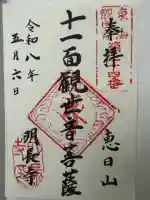 奉拝
恵日山
十一面観世音菩薩
明長寺
令和八年
五月六日